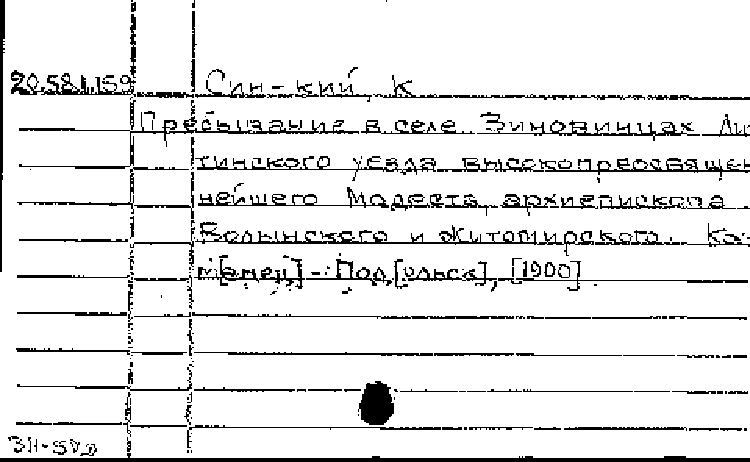 20.58.1.159 Син-кий, К
Пребывание в селе Зиновинцах Ли
тинского уезда высокопреосвящен
нейшего Модеста, архиепископа
Волынского и Житомирского. Ка
м[енец]-Под[ольск], [1900]